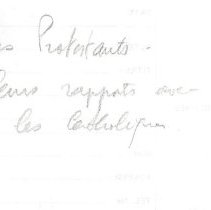 es Protestants.
leurs rapports avec
les Catholiques.